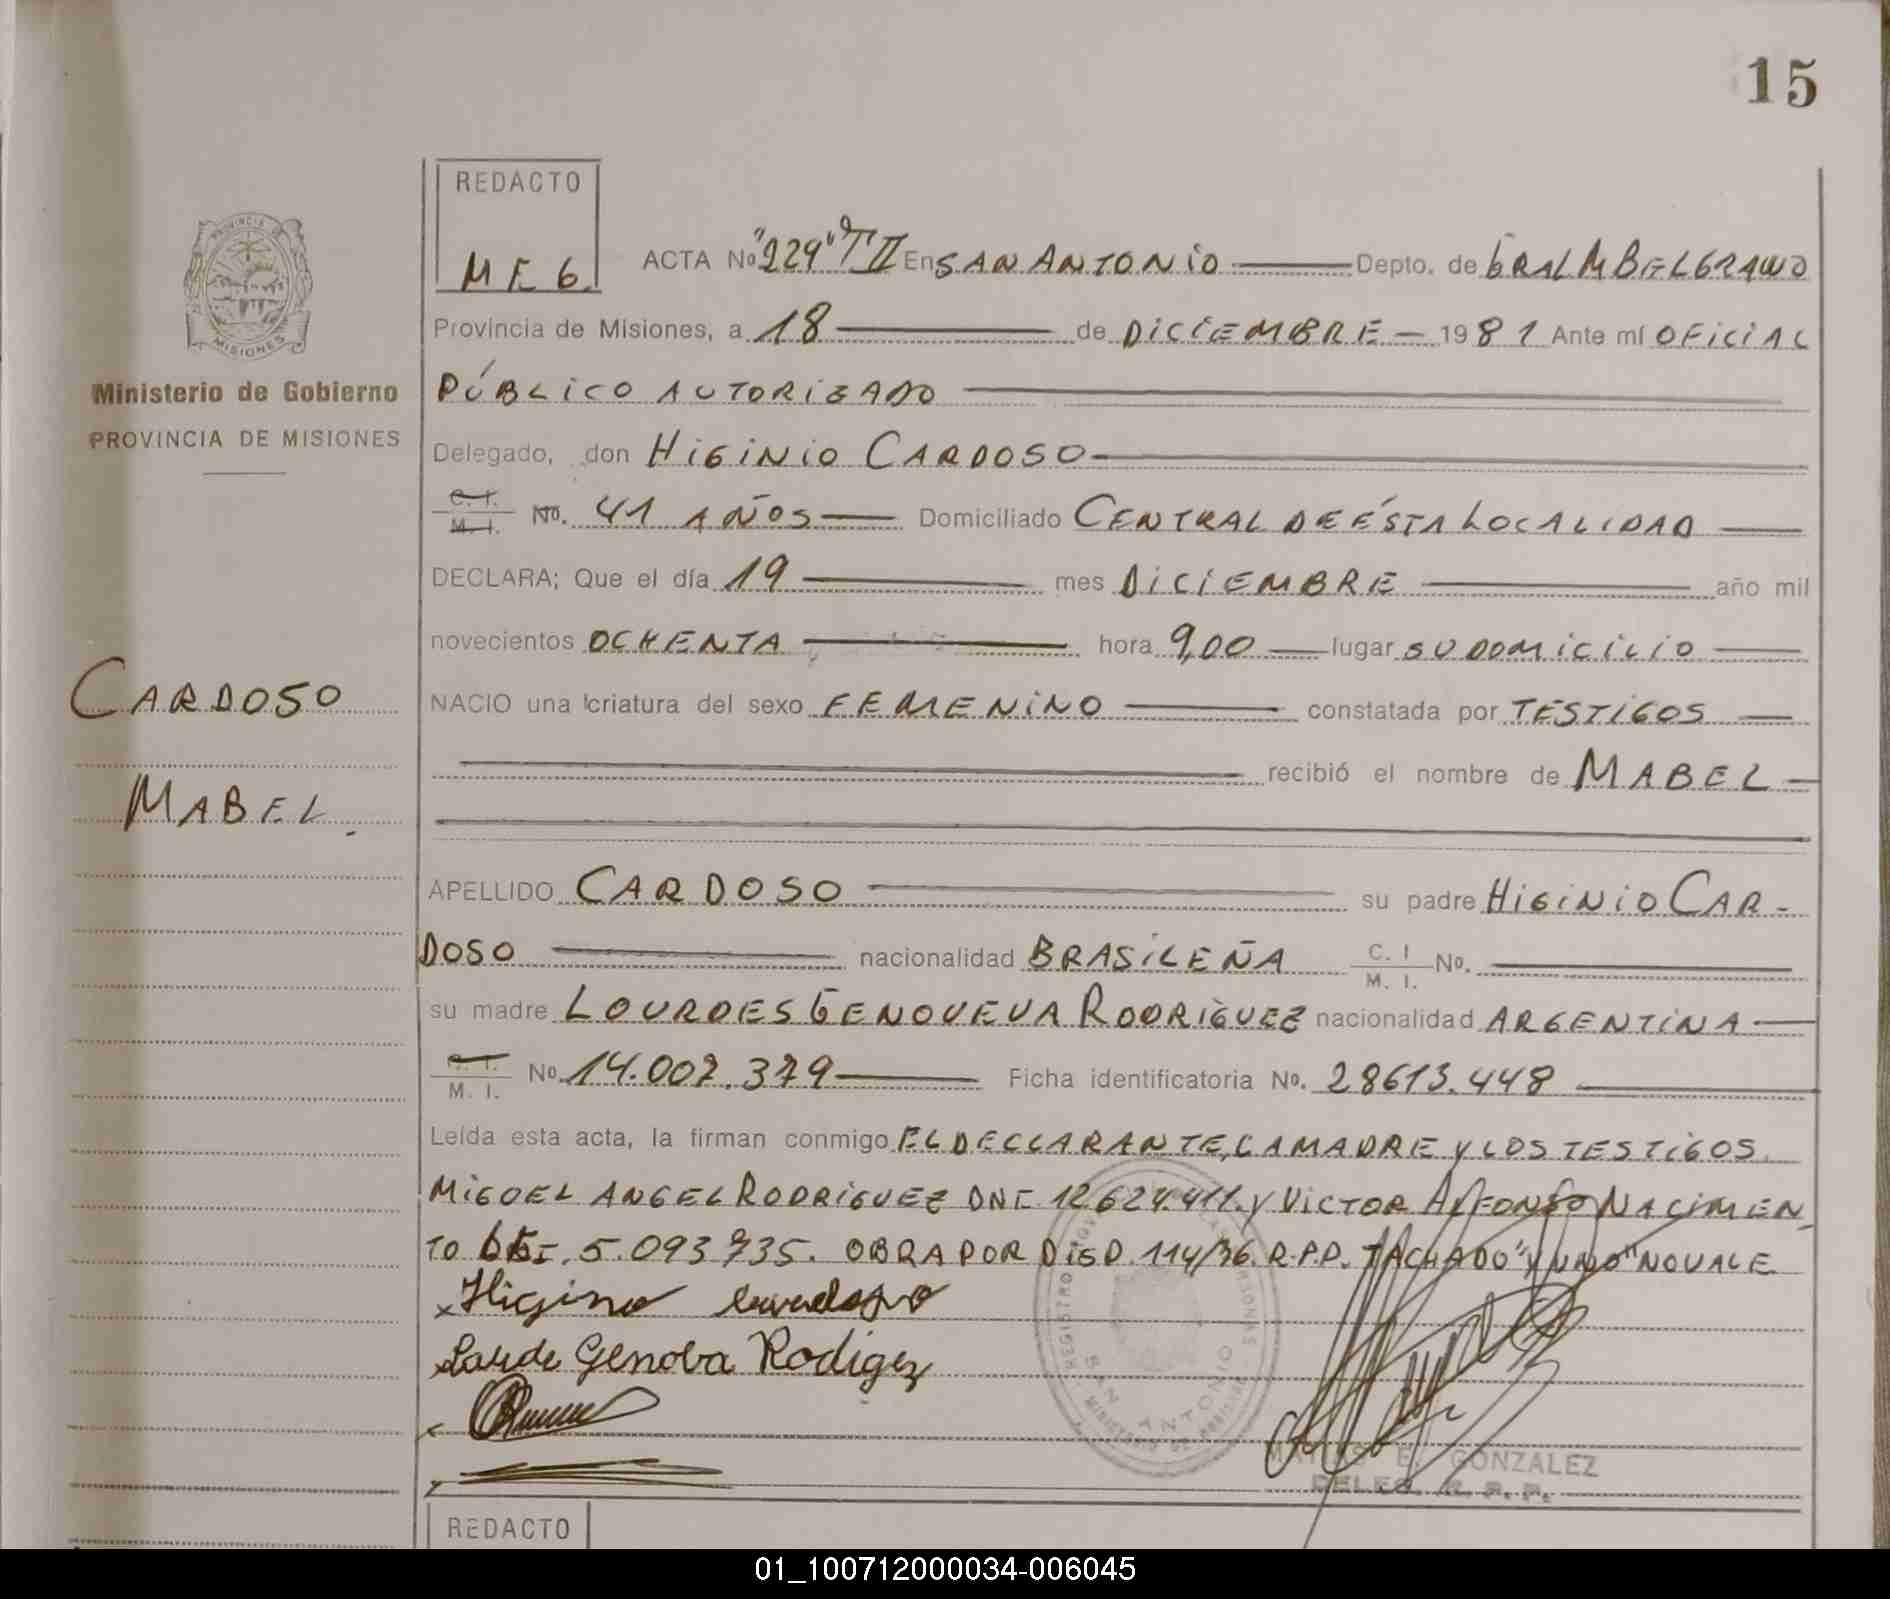 15
REDACTO
M E G.
ACTA No "229" T II En SAN ANTONIO Depto. de GRAL M BELGRANO
Provincia de Misiones, a 18 de DICIEMBRE 1981 Ante mí OFICIAL
PÚBLICO AUTORIZADO
Ministerio de Gobierno
PROVINCIA DE MISIONES
Delegado, don HIGINIO CARDOSO
C. I. M. I. No. 41 AÑOS Domiciliado CENTRAL DE ÉSTA LOCALIDAD
DECLARA; Que el día 19 mes DICIEMBRE año mil
novecientos OCHENTA hora 9,00 lugar SU DOMICILIO
CARDOSO
MABEL.
NACIO una criatura del sexo FEMENINO constatada por TESTIGOS
recibió el nombre de MABEL
APELLIDO CARDOSO su padre HIGINIO CAR-
DOSO nacionalidad BRASILEÑA C. I M. I. No.
su madre LOURDES GENOVEVA RODRIGUEZ nacionalidad ARGENTINA
C. I. M. I. No. 14.007.379 Ficha identificatoria No. 28613.448
Leída esta acta, la firman conmigo EL DECLARANTE, LA MADRE Y LOS TESTIGOS
MIGUEL ANGEL RODRIGUEZ DNI 12.624.411. Y VICTOR ALFONSO NACIMEN-
TO 5.093.735. OBRA POR DISP. 114/36. R.P.P. TACHADO "Y UNO" NO VALE
x Higino cardoso
Lourde Genoba Rodigez
SAN ANTONIO
MATIAS E. GONZALEZ
DELEG. R. P. P.
REDACTO
01_100712000034-006045